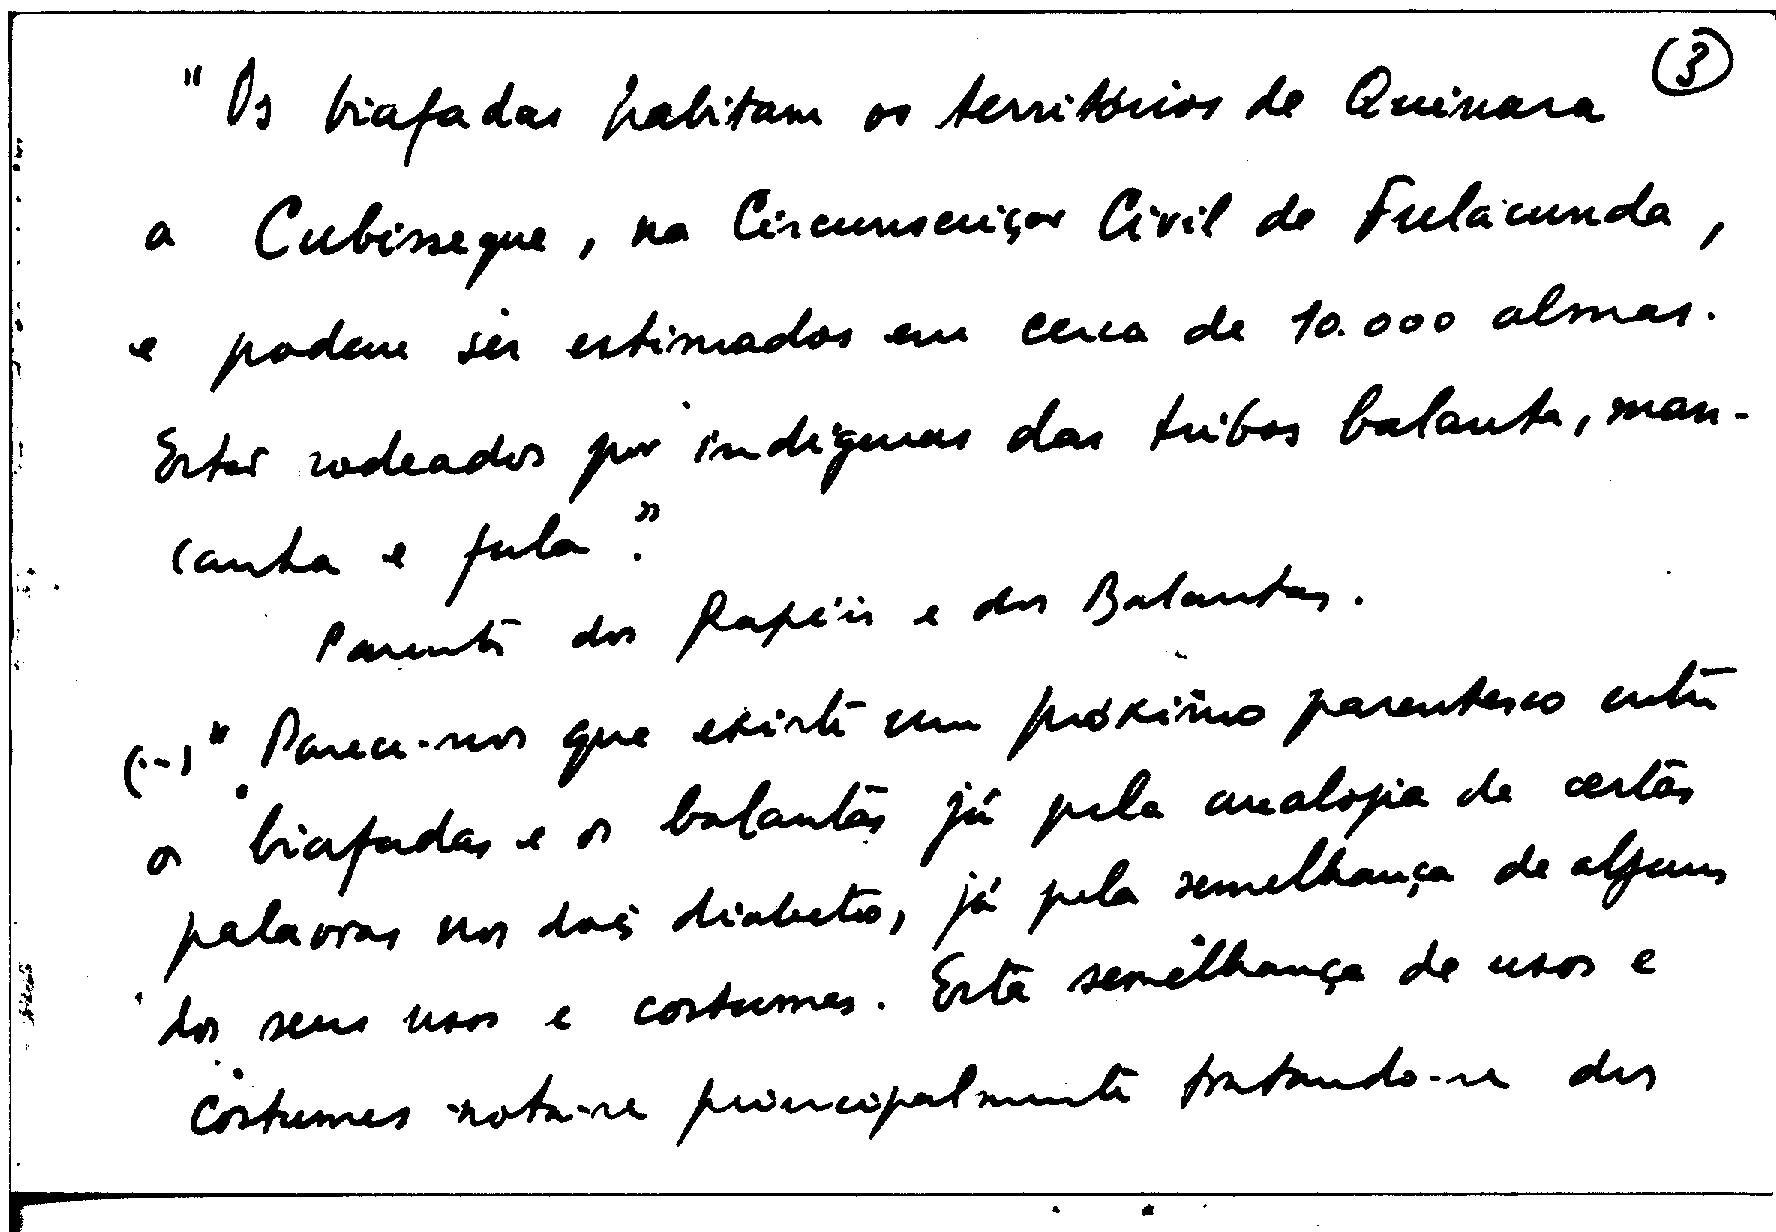 3
"Os biafadas habitam os territórios de Quinara
a Cubisseque, na Circunscrição Civil de Fulacunda,
e podem ser estimados em cerca de 10.000 almas.
Estão rodeados por indígenas das tribos balanta, man-
canha e fula".
Parente dos Papéis e dos Balantas.
(...) "Parece-nos que existe um próximo parentesco entre
os biafadas e os balantas já pela analogia de certas
palavras nos dois dialectos, já pela semelhança de alguns
dos seus usos e costumes. Esta semelhança de usos e
costumes nota-se principalmente tratando-se dos